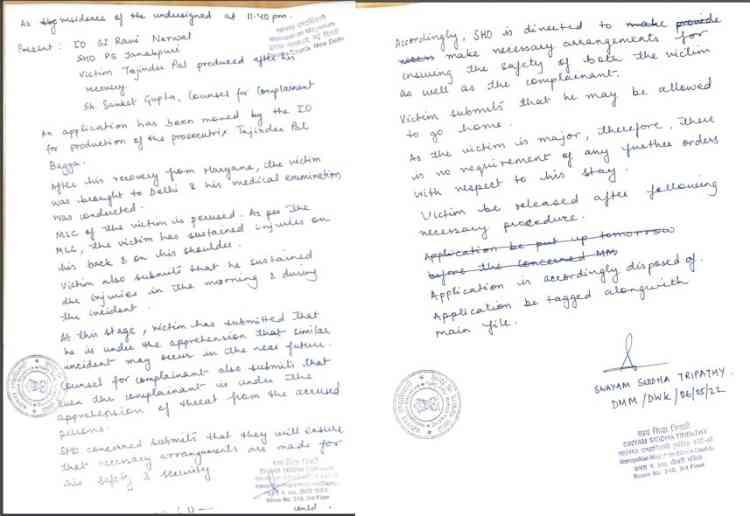 As the residence of the undersigned at 11:40 pm.
Present : IO SI Ravi Narwal
SHO PS Janakpuri
Victim Tajinder Pal produced after his
recovery.
Sh Sanket Gupta, Counsel for Complainant
An application has been moved by the IO
for production of the prosecutrix Tajinder Pal
Bagga.
After his recovery from Haryana, the victim
was brought to Delhi & his medical examination
was conducted.
MLC of the victim is perused. As per the
MLC, the victim has sustained injuries on
his back & on his shoulder.
Victim also submits that he sustained
the injuries in the morning & during
the incident.
At this stage, victim has submitted that
he is under the apprehension that similar
incident may occur in the near future.
Counsel for complainant also submits that
even the complainant is under the
apprehension of threat from the accused
persons.
SHO concerned submits that they will ensure
that necessary arrangements are made for
his safety & security
Contd.
Accordingly, SHO is directed to make provide
make necessary arrangements for
ensuring the safety of both the victim
as well as the complainant.
Victim submits that he may be allowed
to go home.
As the victim is major, therefore, there
is no requirement of any further orders
with respect to his stay.
Victim be released after following
necessary procedure.
Application be put up tomorrow
before the concerned MM
Application is accordingly disposed of.
Application be tagged alongwith
main file.
SWAYAM SIDDHA TRIPATHY
DMM/DWK/06/05/22